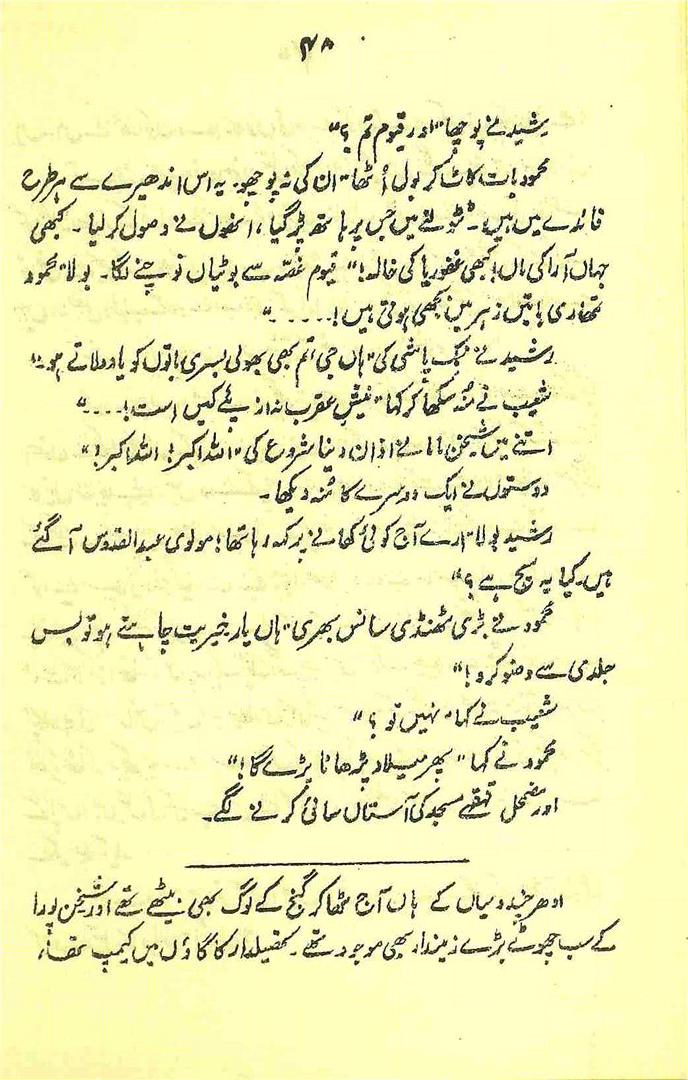 ۴۸
رشید نے پوچھا "اور قیوم تم؟"
محمود بات کاٹ کر بول اُٹھا "ان کی نہ پوچھو۔ یہ اس اندھیرے سے ہر طرح
فائدے میں ہیں۔ ٹٹولنے میں جس پر ہاتھ پڑ گیا، انھوں نے وصول کر لیا۔ کبھی
جہاں آرا کی ماں! کبھی غفوریا کی خالہ!" قیوم غصّہ سے بوٹیاں نوچنے لگا۔ بولا "محمود
تمھاری باتیں زہر میں بجھی ہوتی ہیں!....."
رشید نے نمک پاشی کی "ہاں جی تم بھی بھولی بسری باتوں کو یاد دلاتے ہو۔"
شعیب نے مُنہ سُکھا کر کہا "نیشِ عقرب نہ از پئے کیں است!...."
اتنے میں شیخن ماما نے اذان دینا شروع کی "اللہ اکبر! اللہ اکبر!"
دوستوں نے ایک دوسرے کا مُنہ دیکھا۔
رشید بولا "ارے آج کوئی کھانے پر کہہ رہا تھا؛ مولوی عبدالقدوس آگئے
ہیں۔ کیا یہ سچ ہے؟"
محمود نے بڑی ٹھنڈی سانس بھری "ہاں یار خیریت چاہتے ہو تو بس
جلدی سے وضو کرو!"
شعیب نے کہا "نہیں تو؟"
محمود نے کہا "پھر میلاد پڑھانا پڑے گا!"
اور مضمحل قہقہے مسجد کی آستاں سائی کرنے لگے۔
ادھر میاں کے ہاں آج ٹھاکر گنج کے لوگ بھی بیٹھے تھے اور شیخن پورا
کے سب چھوٹے بڑے زمیندار بھی موجود تھے۔ تحصیلدار کا گاؤں میں کیمپ تھا،